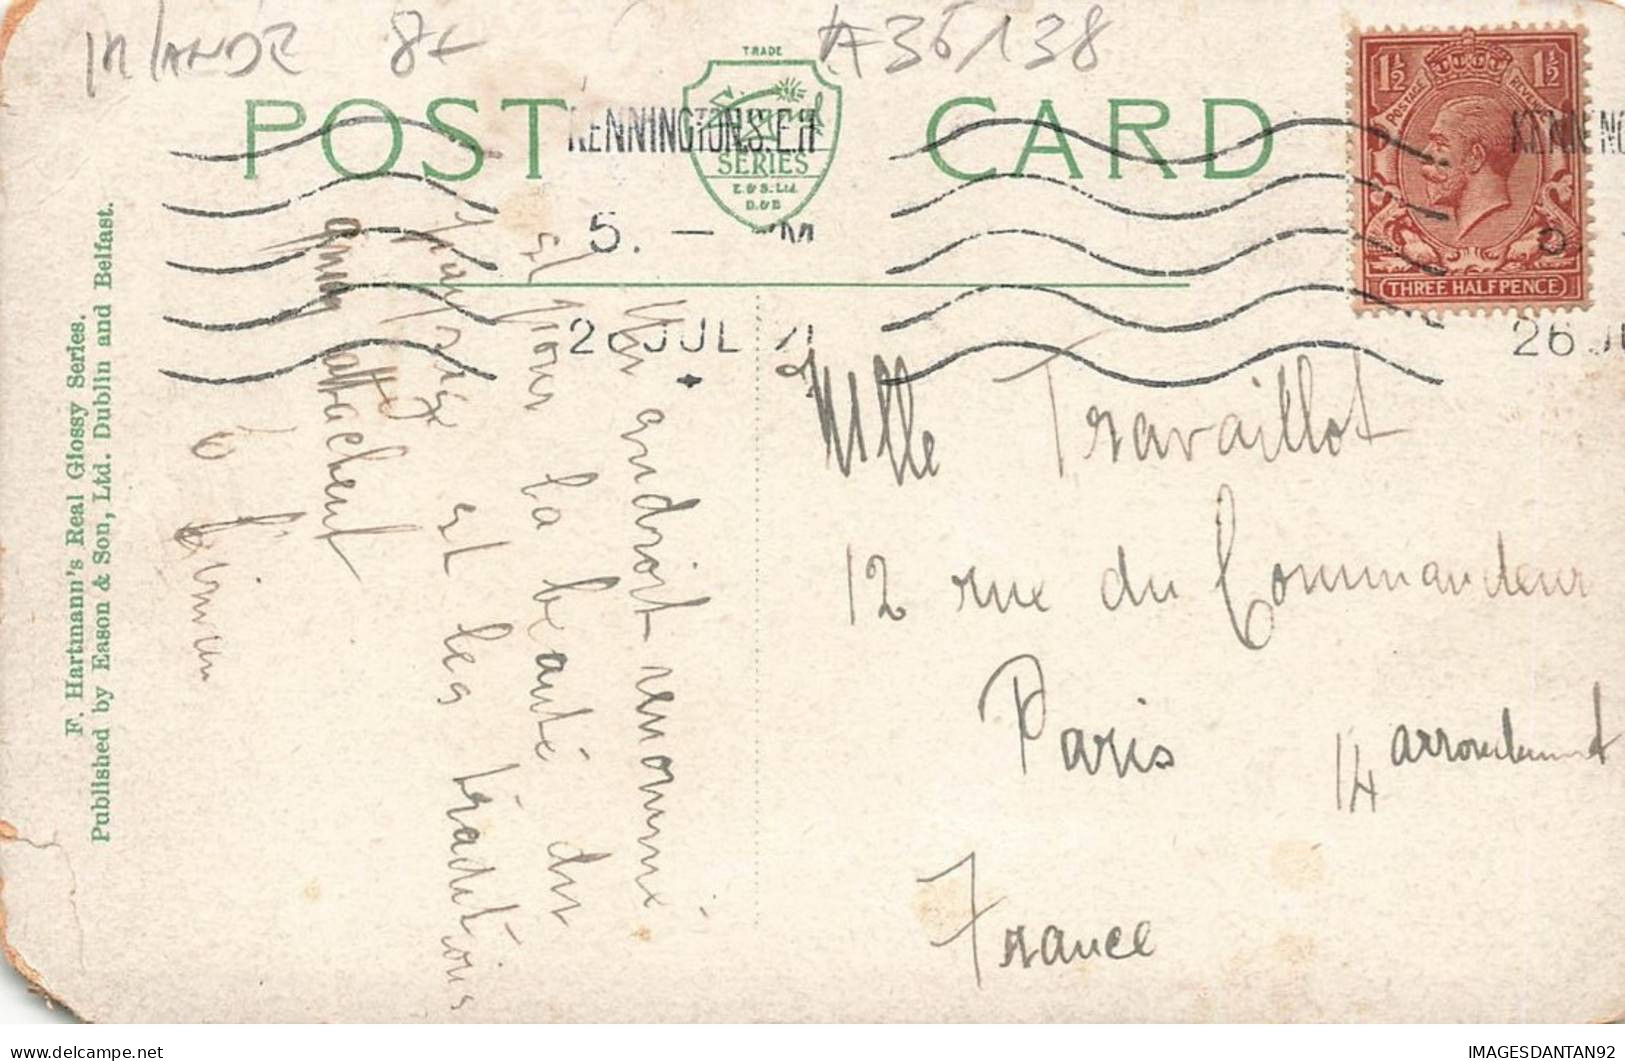 IRLANDE 8+ A36138
TRADE
POST CARD
Signal
SERIES
E & S. Ltd.
D. & B
KENNINGTON S.E.11
5. — PM
26 JUL 21
POSTAGE REVENUE
1½ 1½
THREE HALFPENCE
KENNING
26 JU
F. Hartmann's Real Glossy Series.
Published by Eason & Son, Ltd. Dublin and Belfast.
Un endroit renommé
et pour la beauté du
paysage et les traditions
attachent
Mlle Travaillot
12 rue du Commandeur
Paris 14 arrondissement
France
IMAGESDANTAN92
delcampe.net